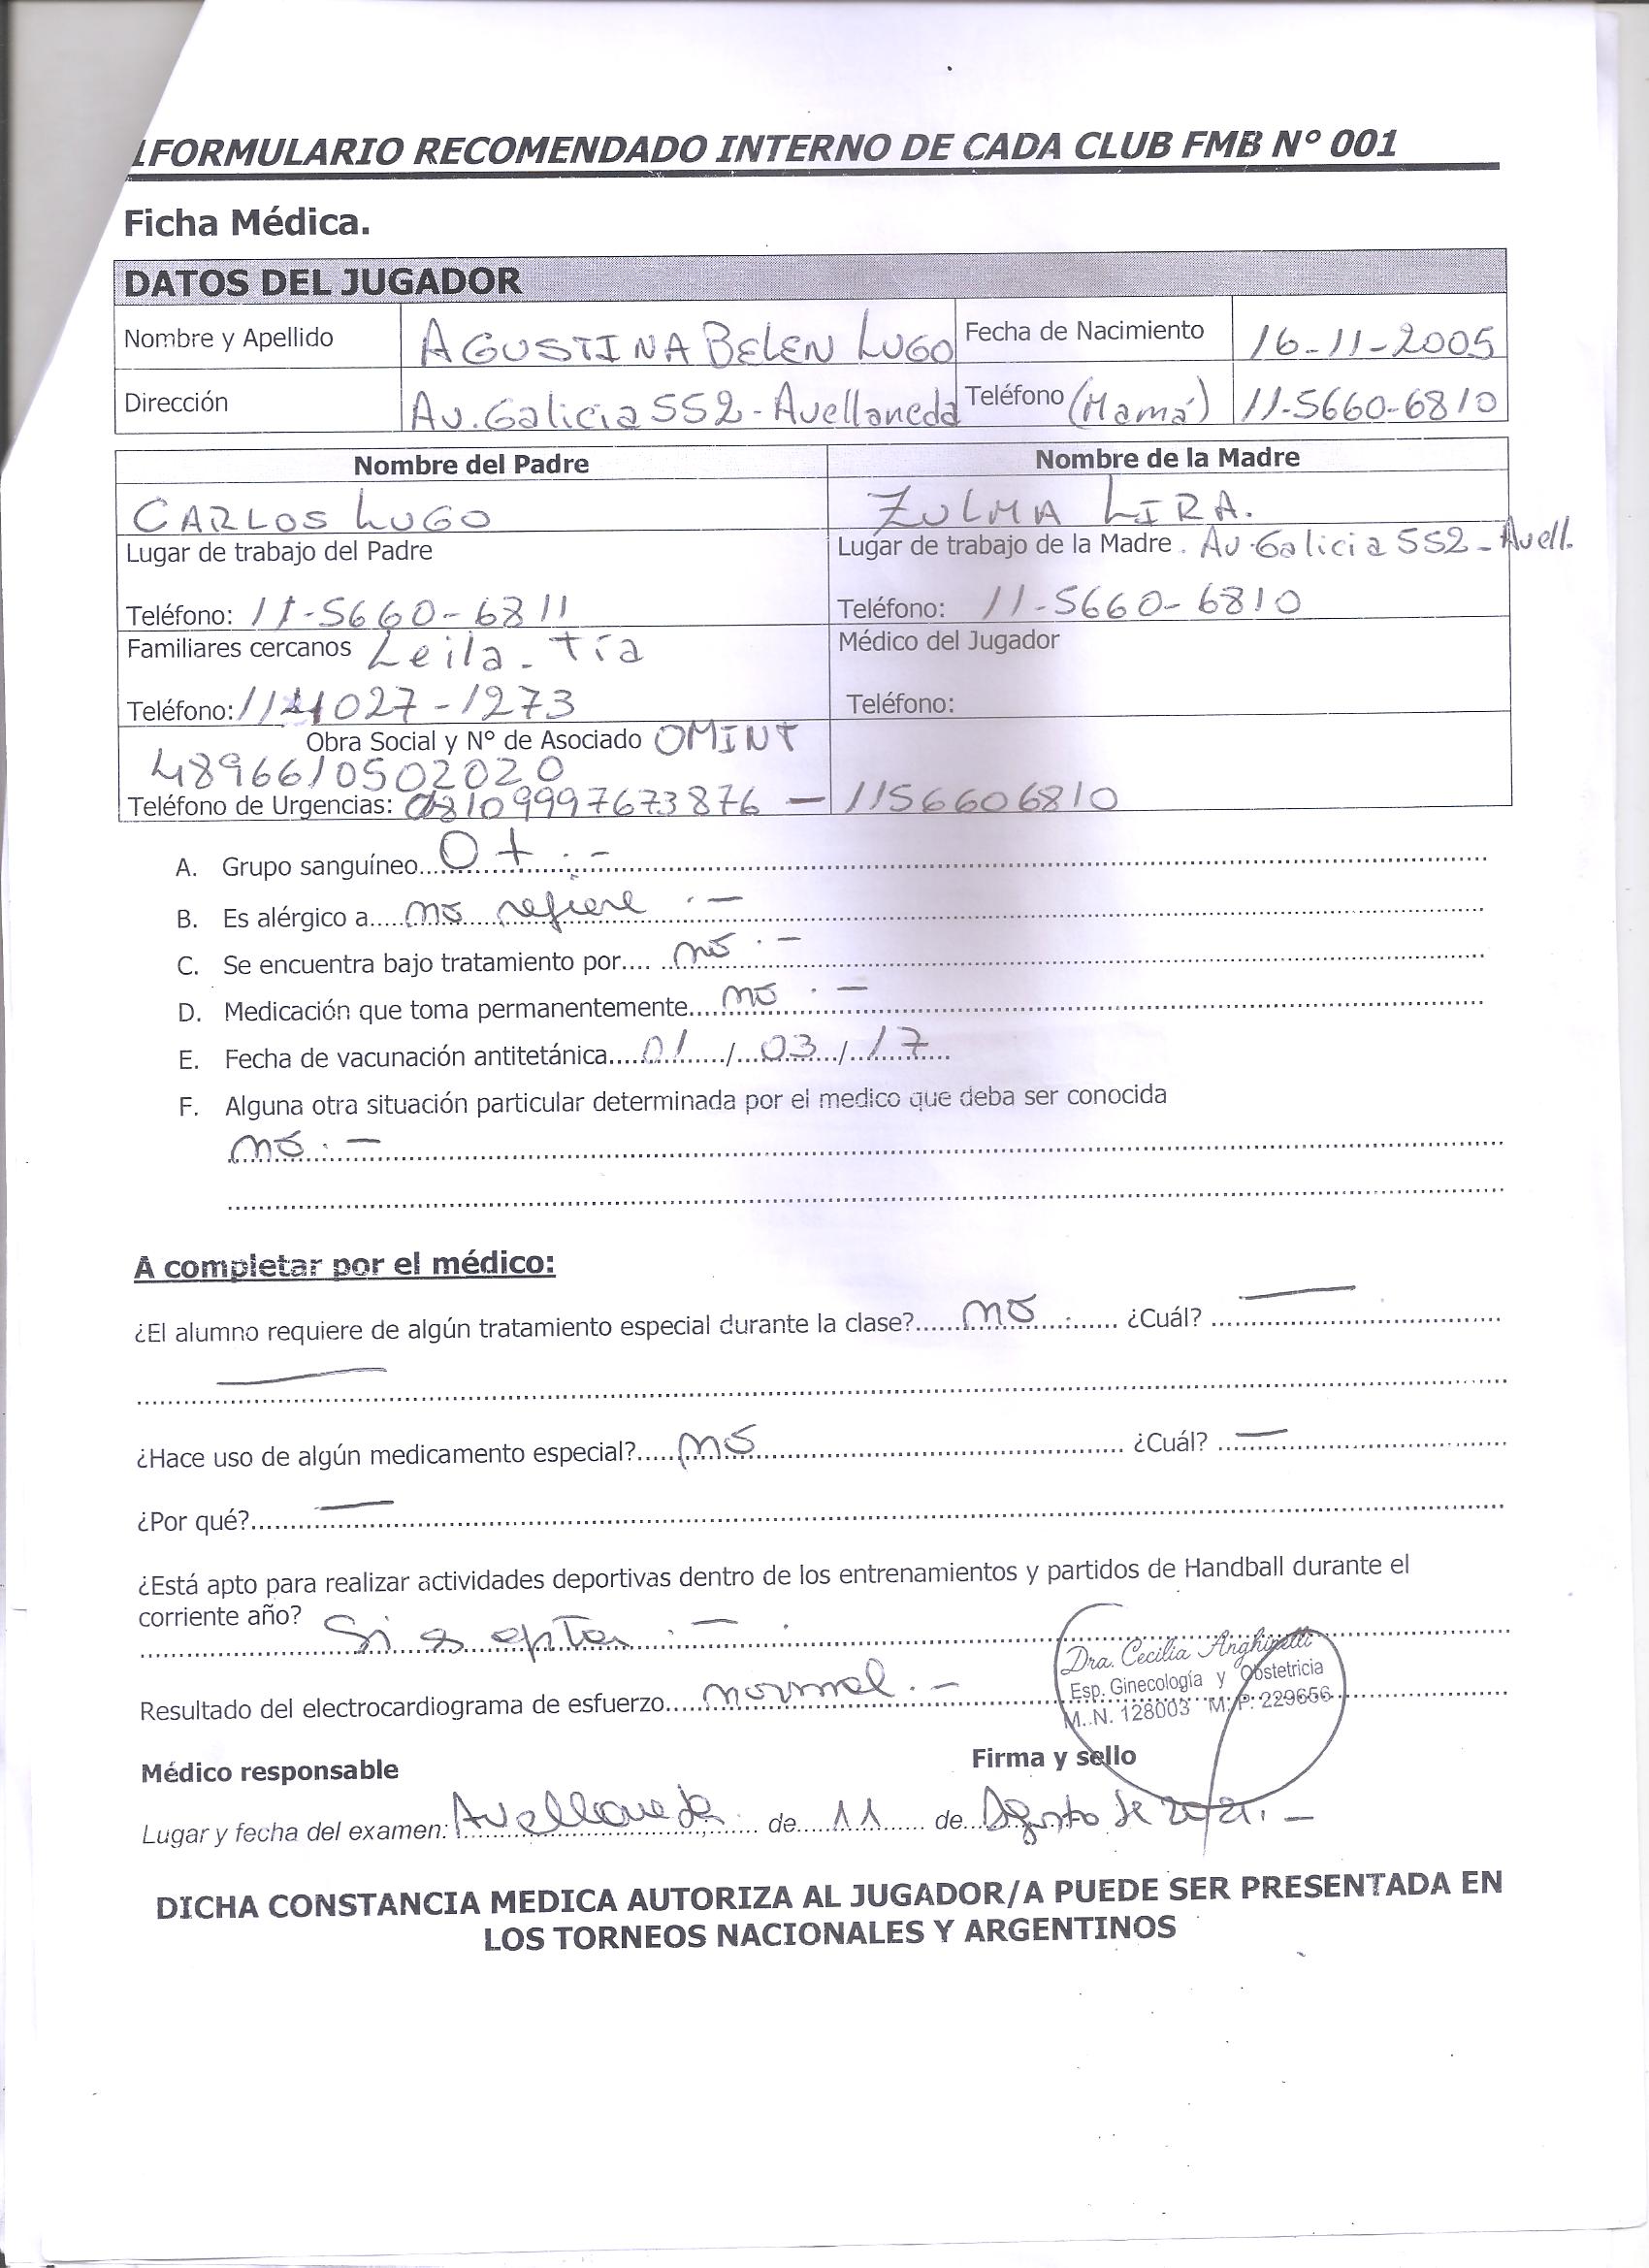 FORMULARIO RECOMENDADO INTERNO DE CADA CLUB FMB N° 001
Ficha Médica.
DATOS DEL JUGADOR
Nombre y Apellido AGUSTINA BELEN LUGO Fecha de Nacimiento 16-11-2005
Dirección Av. Galicia 552 - Avellaneda Teléfono (Mamá) 11-5660-6810
Nombre del Padre Nombre de la Madre
CARLOS LUGO ZULMA LIRA.
Lugar de trabajo del Padre Lugar de trabajo de la Madre. Av. Galicia 552 - Avell.
Teléfono: 11-5660-6811 Teléfono: 11-5660-6810
Familiares cercanos Leila - Tía Médico del Jugador
Teléfono: 1141027-1273 Teléfono:
Obra Social y N° de Asociado OMINT
4896610502020
Teléfono de Urgencias: 08109997673876 — 1156606810
A. Grupo sanguíneo...O + . -
B. Es alérgico a.....no refiere . -
C. Se encuentra bajo tratamiento por.... no . -
D. Medicación que toma permanentemente...no . -
E. Fecha de vacunación antitetánica....01/...03.../...17...
F. Alguna otra situación particular determinada por el medico que deba ser conocida
no . -
A completar por el médico:
¿El alumno requiere de algún tratamiento especial durante la clase?.....no........ ¿Cuál? —
—
¿Hace uso de algún medicamento especial?.....no........ ¿Cuál? —
¿Por qué?.... —
¿Está apto para realizar actividades deportivas dentro de los entrenamientos y partidos de Handball durante el
corriente año? Si es apta . -
Dra. Cecilia Anghinetti
Esp. Ginecología y Obstetricia
M.N. 128003 M.P. 229656
Resultado del electrocardiograma de esfuerzo....normal . -
Médico responsable Firma y sello
Lugar y fecha del examen: Avellaneda de 11 de Agosto de 2021. -
DICHA CONSTANCIA MEDICA AUTORIZA AL JUGADOR/A PUEDE SER PRESENTADA EN
LOS TORNEOS NACIONALES Y ARGENTINOS